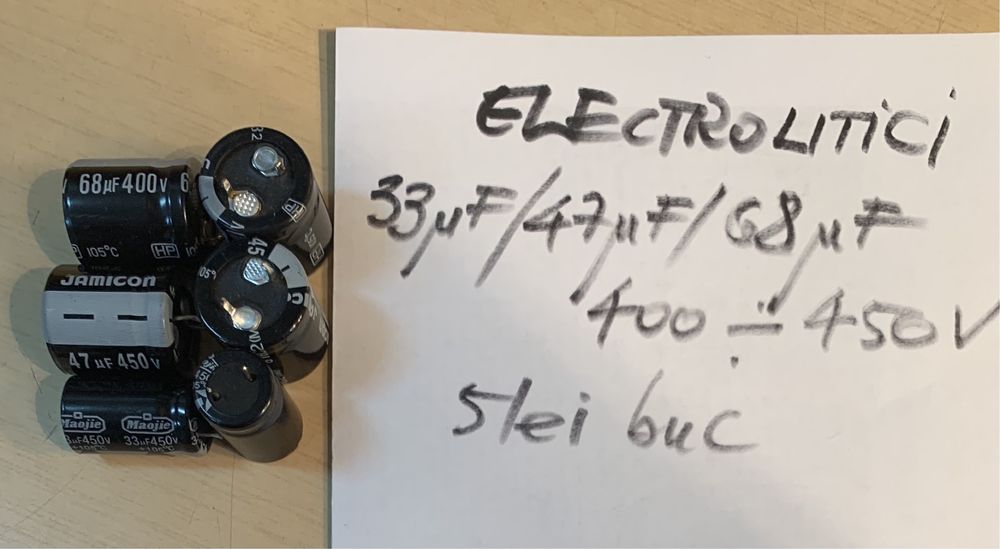 68µF400V 6
105°C HP
JAMICON
47 µF 450V
Maojie Maojie
µF450V 33µF450V 33
+105°C
32
45
105°
ELECTROLITICI
33µF/47µF/68µF
400 ÷ 450V
5 lei buc